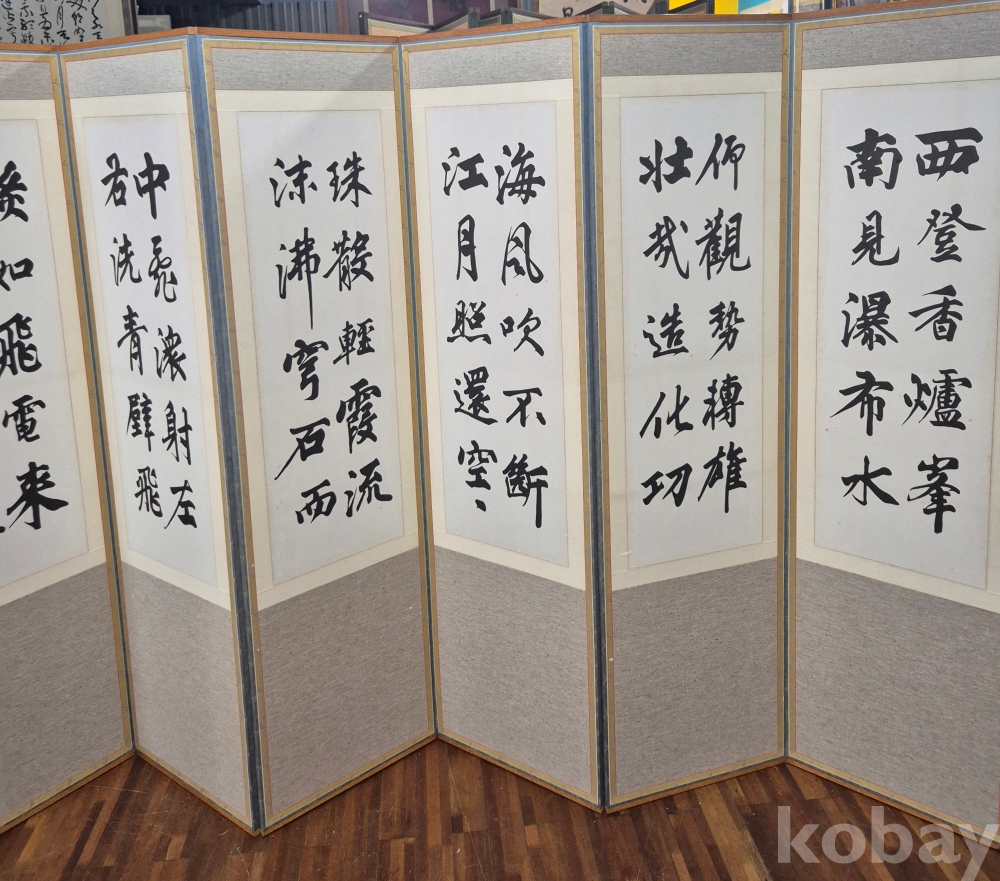 西登香爐峯
南見瀑布水
仰觀勢轉雄
壯哉造化功
海風吹不斷
江月照還空〻
珠散輕霞流
沫沸穹石而
中亂潨射左
右洗青壁飛
欻如飛電來
kobay